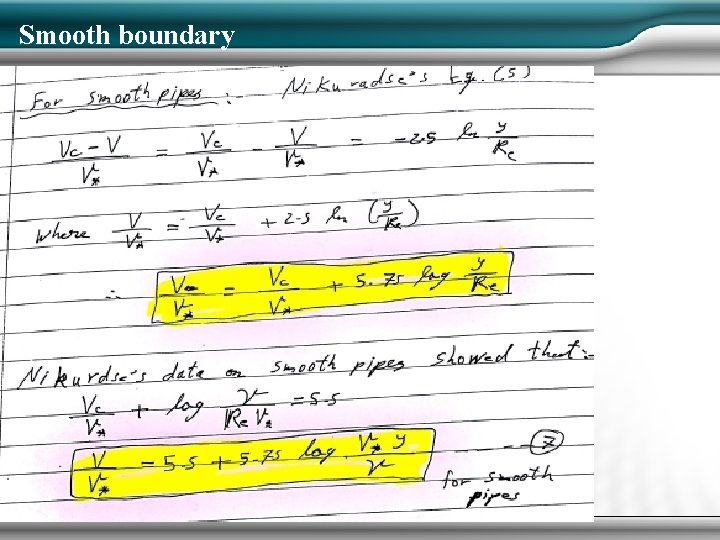 Smooth boundary
For smooth pipes :- Nikuradse's Eq. (5)
Vc - V / V* = Vc / V* - V / V* = -2.5 ln y / Re
where V / V* = Vc / V* + 2.5 ln (y / Re)
∴ V / V* = Vc / V* + 5.75 log y / Re
Nikurdse's data on smooth pipes showed that:-
Vc / V* + log ν / Re V* = 5.5
V / V* = 5.5 + 5.75 log V* y / ν --- 7
for smooth
pipes